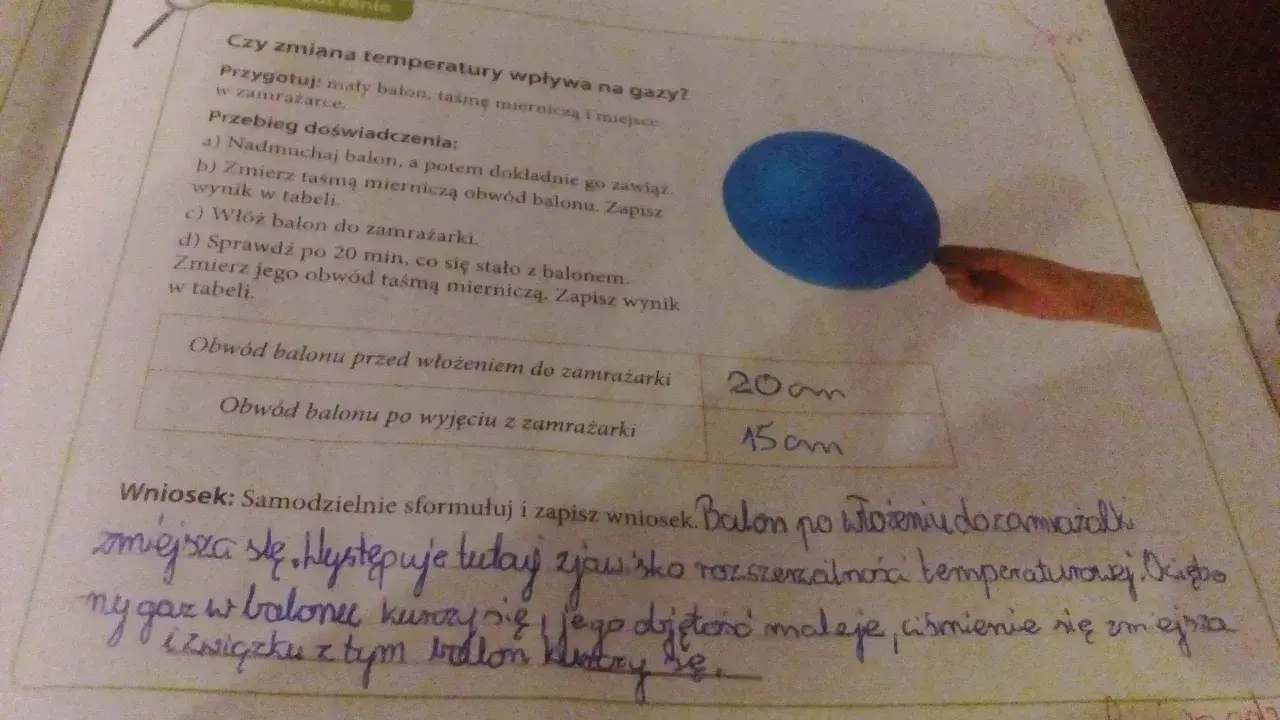 Czy zmiana temperatury wpływa na gazy?
Przygotuj: mały balon, taśmę mierniczą i miejsce
w zamrażarce.
Przebieg doświadczenia:
a) Nadmuchaj balon, a potem dokładnie go zawiąż.
b) Zmierz taśmą mierniczą obwód balonu. Zapisz
wynik w tabeli.
c) Włóż balon do zamrażarki.
d) Sprawdź po 20 min, co się stało z balonem.
Zmierz jego obwód taśmą mierniczą. Zapisz wynik
w tabeli.
Obwód balonu przed włożeniem do zamrażarki 20 cm
Obwód balonu po wyjęciu z zamrażarki 15 cm
Wniosek: Samodzielnie sformułuj i zapisz wniosek. Balon po włożeniu do zamrażalki
zmiejsza się. Występuje tutaj zjawisko rozszerzalności temperaturowej. Oziębio
ny gaz w balonu kurczy się, jego objętość maleje, ciśmienie się zmiejsza
i związku z tym balon kurczy się.